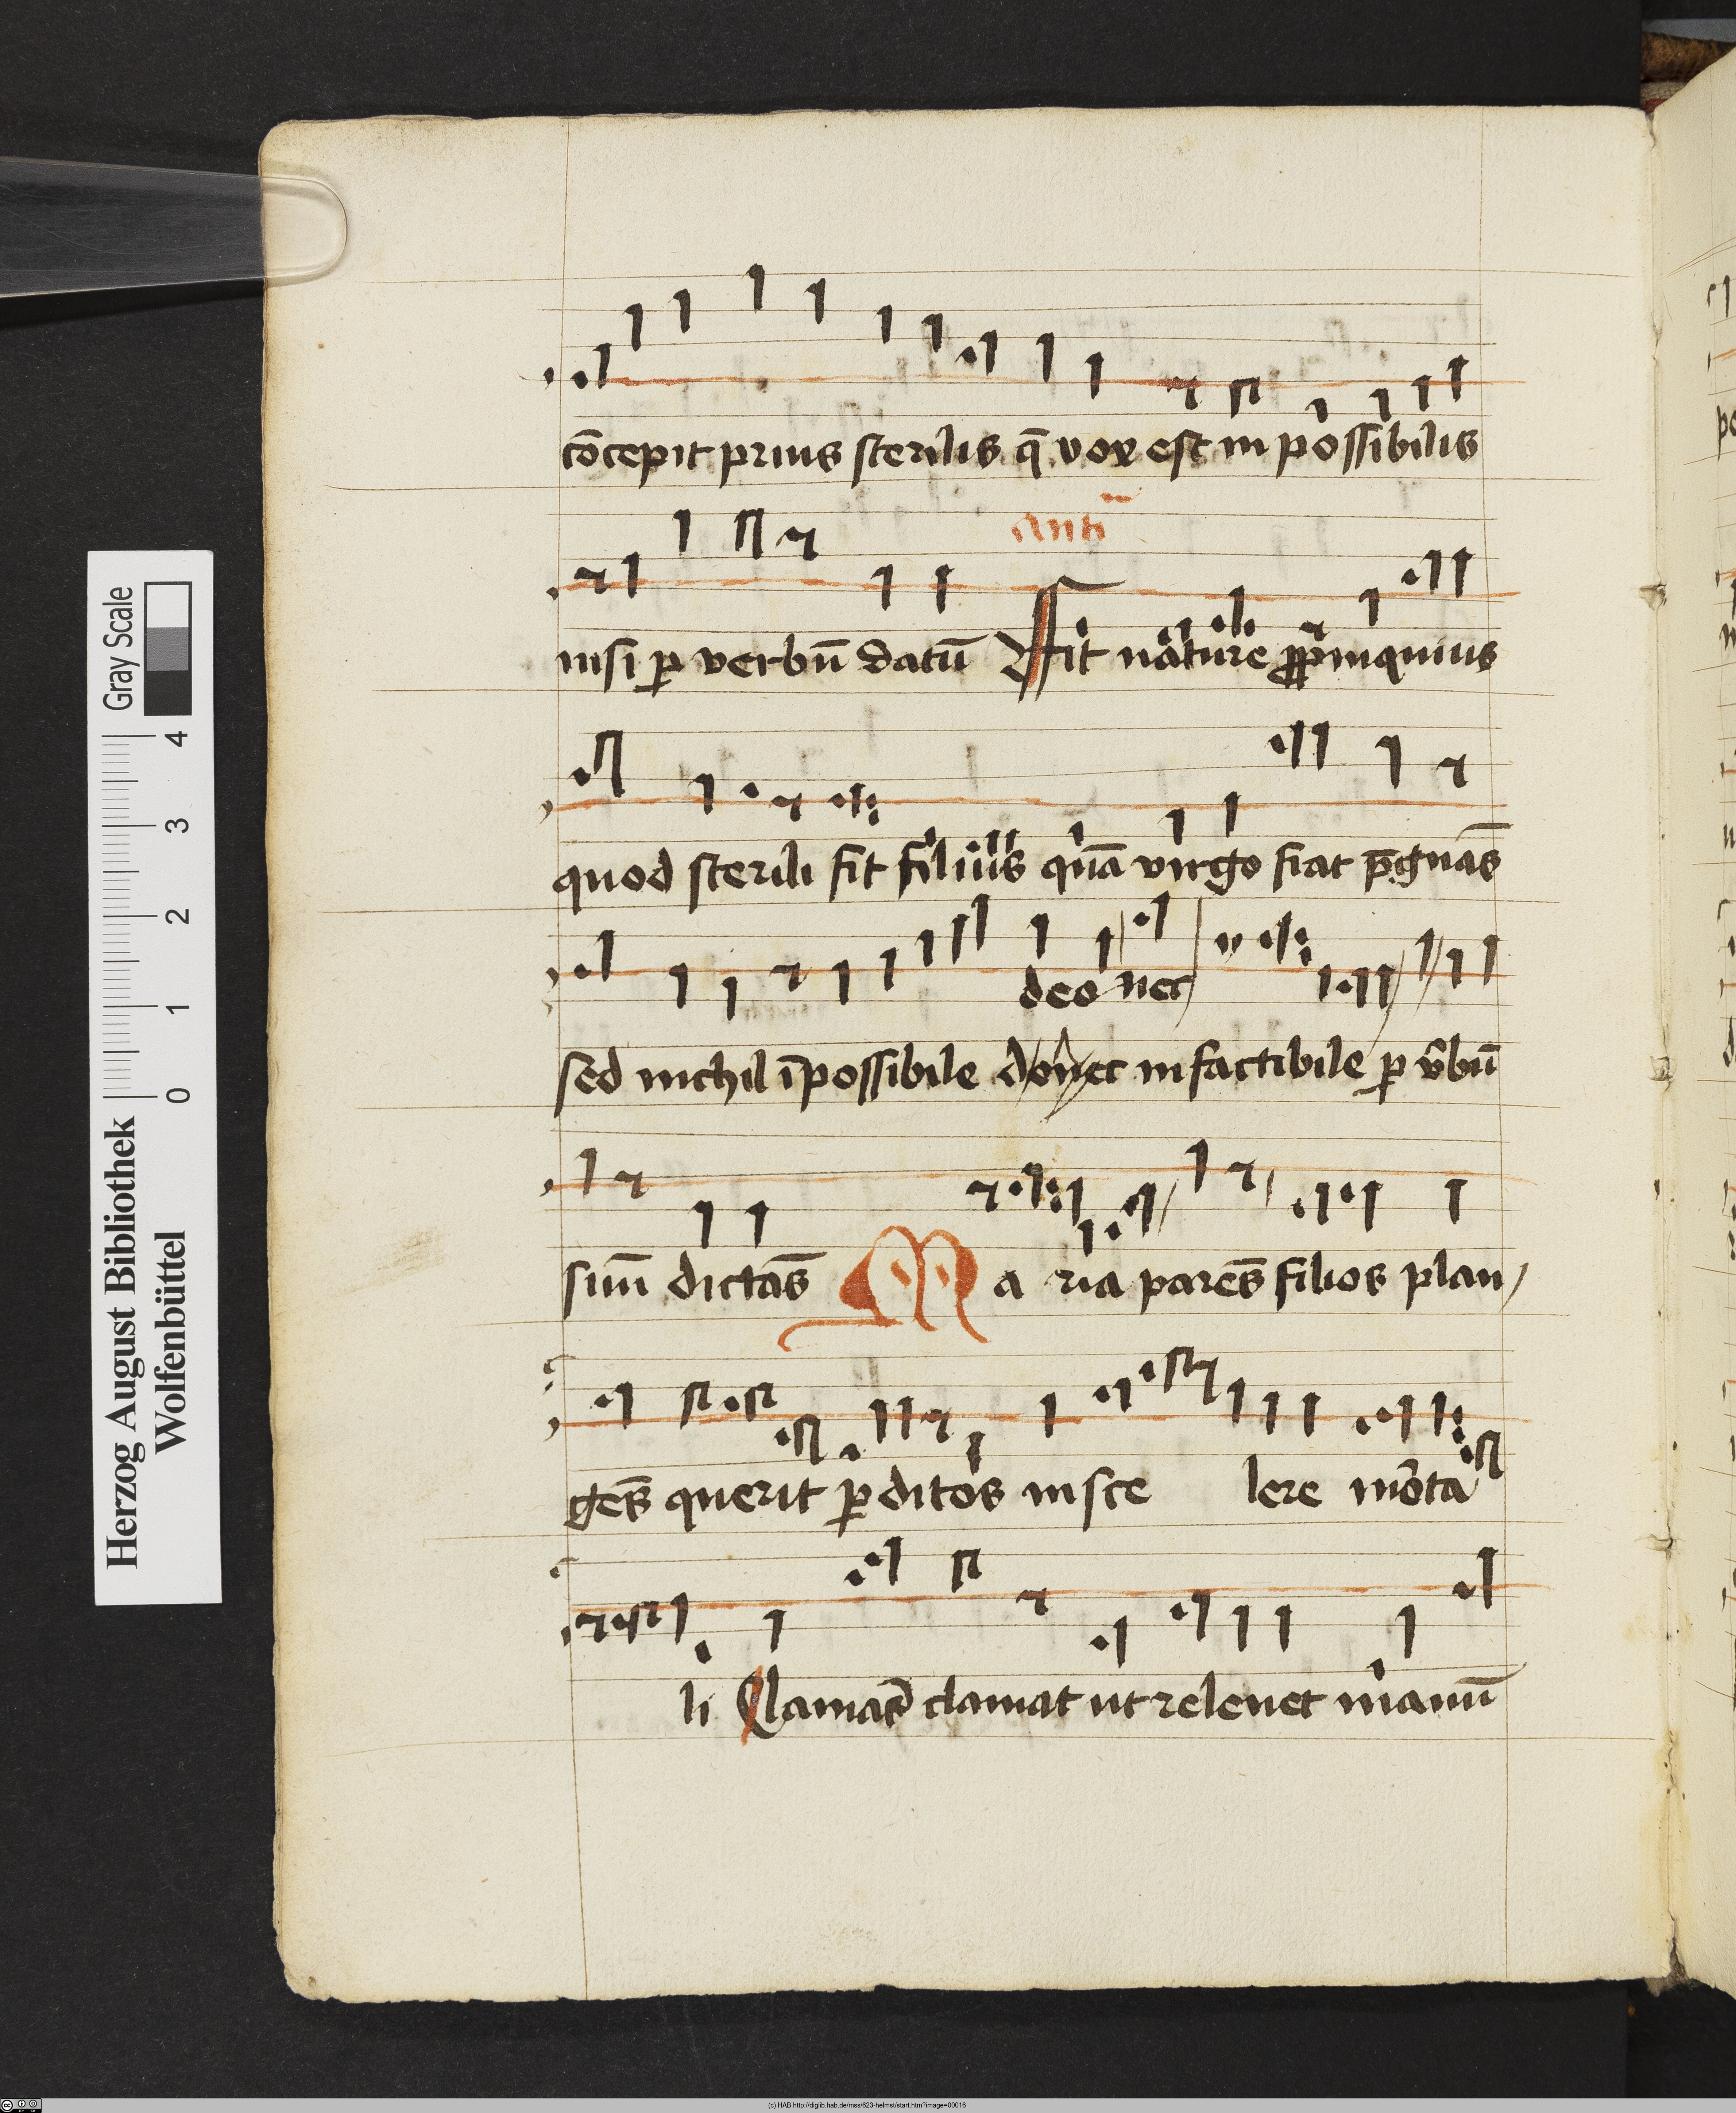 cōcepit prius sterilis q̄ vox est inpossibilis
Anti
nisi ꝑ verbū datū Fit nature ꝓpinquius
quod sterili fit filius quā virgo fiat p̄gnās
deo nec
sed nichil īpossibile donec infactibile ꝑ v̄bū
suū dictās Maria parēs filios plan
gēs querit ꝑditos in scelere mōta
li Clamās clamat ut releuet manū
Herzog August Bibliothek
Wolfenbüttel
0 1 2 3 4
Gray Scale
(c) HAB http://diglib.hab.de/mss/623-helmst/start.htm?image=00016